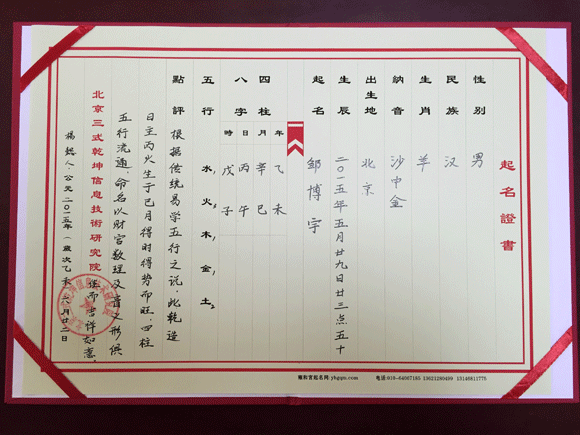 起名證書
性別 男
民族 汉
生肖 羊
納音 沙中金
出生地 北京
生辰 二〇一五年五月廿九日廿三点五十
起名 邹博宇
四柱 年 月 日 時
八字 乙未 辛巳 丙午 戊子
五行 水1 火3 木1 金1 土2
點評 根据传统易学五行之说，此乾造
日主丙火生于巳月得时得势而旺，四柱
五行流通，命名以财官数理及音义形俱
佳而吉祥如意。
北京三式乾坤信息技術研究院
公元二〇一五年 歲次乙未 月廿二日
雍和宫起名网:yhgqm.com 电话:010-64067165 13621280439 13146811770